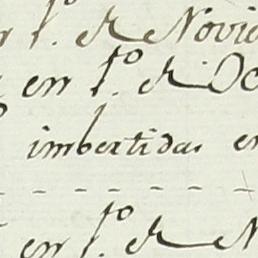 1º. de Novi
en 1º. de Oc
imbertidas en
en 1º. de N